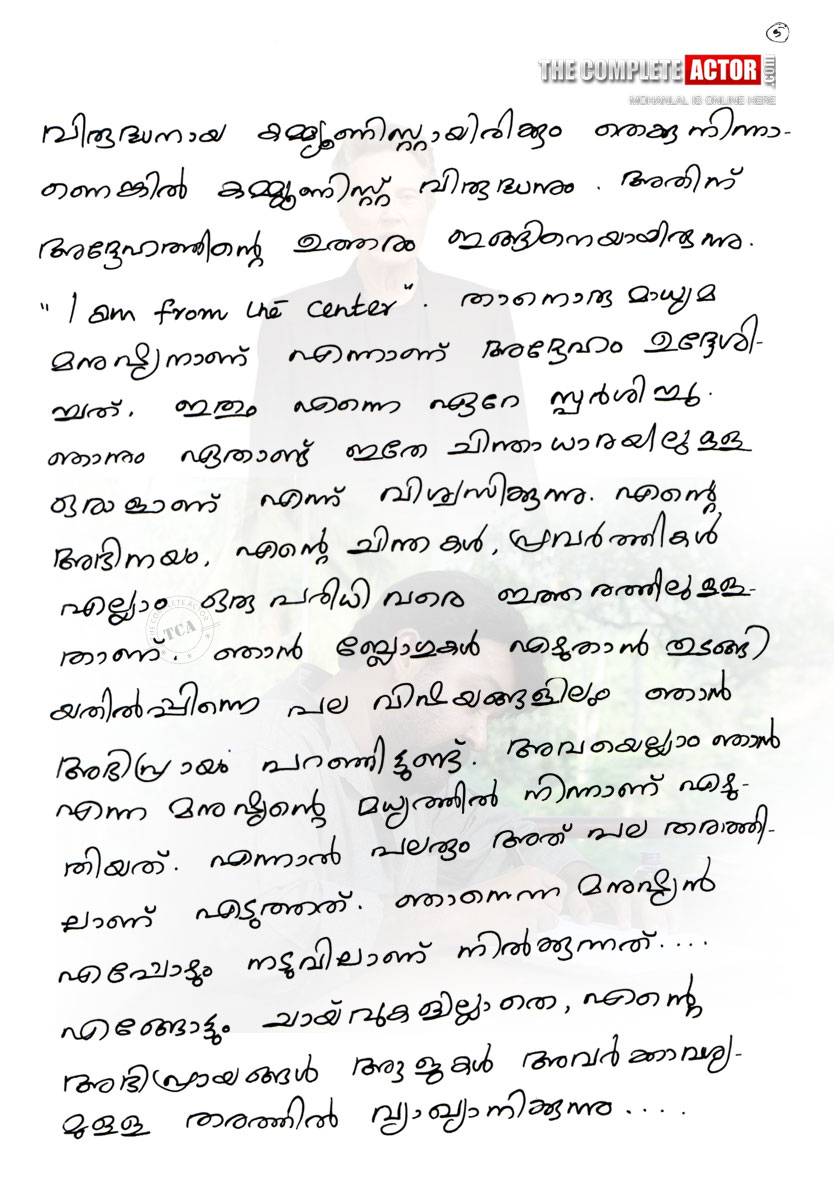 5
THE COMPLETE ACTOR
MOHANLAL IS ONLINE HERE
വിരുദ്ധനായ കമ്മ്യൂണിസ്റ്റായിരിക്കും തെക്കുനിന്നാ-
ണെങ്കിൽ കമ്മ്യൂണിസ്റ്റ് വിരുദ്ധനും. അതിന്
അദ്ദേഹത്തിന്റെ ഉത്തരം ഇങ്ങിനെയായിരുന്നു.
"I am from the center". താനൊരു മാധ്യമ
മനുഷ്യനാണ് എന്നാണ് അദ്ദേഹം ഉദ്ദേശി-
ച്ചത്. ഇതും എന്നെ ഏറെ സ്പർശിച്ചു.
ഞാനും ഏതാണ്ട് ഇതേ ചിന്താധാരയിലുള്ള
ഒരാളാണ് എന്ന് വിശ്വസിക്കുന്നു. എന്റെ
അഭിനയം, എന്റെ ചിന്തകൾ, പ്രവർത്തികൾ
എല്ലാം ഒരു പരിധിവരെ ഇത്തരത്തിലുള്ള-
താണ്. ഞാൻ ബ്ലോഗുകൾ എഴുതാൻ തുടങ്ങി
യതിൽപ്പിന്നെ പല വിഷയങ്ങളിലും ഞാൻ
അഭിപ്രായം പറഞ്ഞിട്ടുണ്ട്. അവയെല്ലാം ഞാൻ
എന്ന മനുഷ്യന്റെ മധ്യത്തിൽ നിന്നാണ് എഴു-
തിയത്. എന്നാൽ പലരും അത് പല തരത്തി-
ലാണ് എടുത്തത്. ഞാനെന്ന മനുഷ്യൻ
എപ്പോഴും നടുവിലാണ് നിൽക്കുന്നത്....
എങ്ങോട്ടും ചായ്‌വുകളില്ലാതെ, എന്റെ
അഭിപ്രായങ്ങൾ ആളുകൾ അവർക്കാവശ്യ-
മുള്ള തരത്തിൽ വ്യാഖ്യാനിക്കുന്നു....
TCA